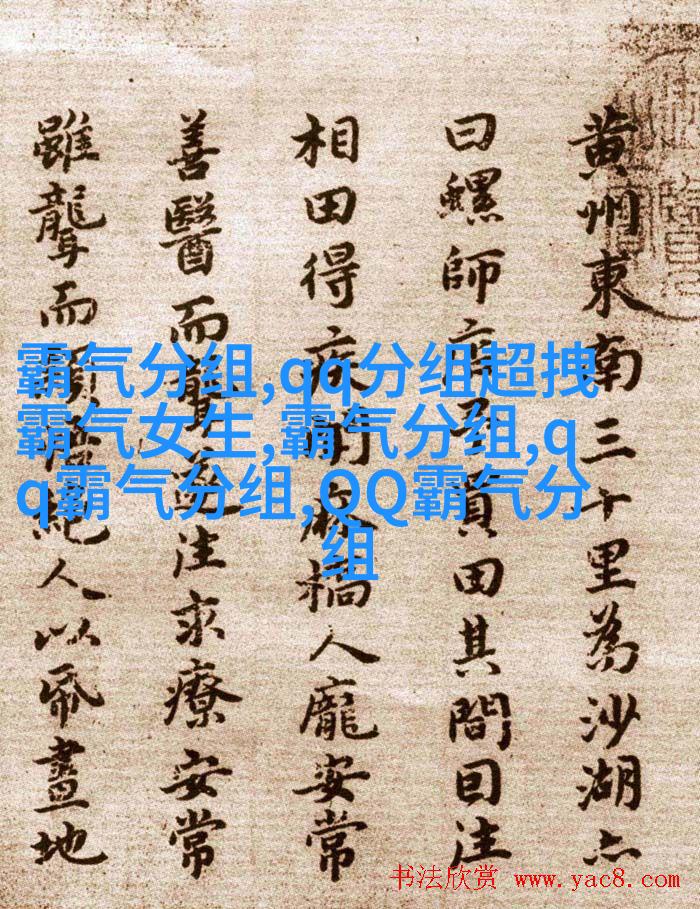 黄州東南三十里為沙湖亦
曰螺師店予買田其間因往
相田得疾聞麻橋人龐安常
善醫而聾遂往求療安常
雖聾而穎悟絕人以紙畫地
霸气分组,qq分组超拽
霸气女生,霸气分组,q
q霸气分组,QQ霸气分
组
书法欣赏 www.yac8.com